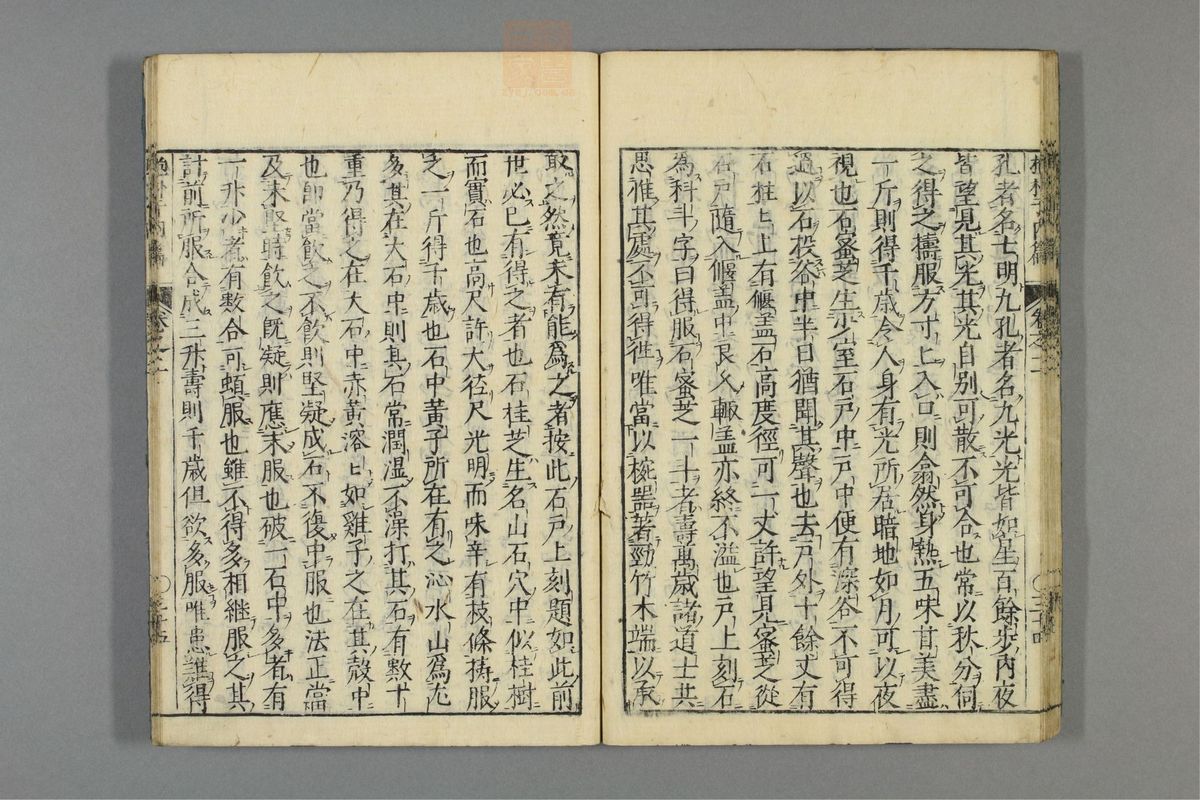 孔者名七明九孔者名九光光皆如星百餘步內夜
皆望見其光其光自别可散不可合也常以秋分伺
之得之擣服方寸匕入口則翕然身熱五味甘美盡
一斤則得千歲令人身有光所居暗地如月可以夜
視也石蜜芝生少室石戸中戸中便有深谷不可得
過以石投谷中半日猶聞其聲也去戸外十餘丈有
石柱上有偃盖石高度徑可一丈許望見蜜芝從
石戸隨入偃盖中良久輙盖亦終不溢也戸上刻石
為科斗字曰得服石蜜芝一斗者壽萬歲諸道士共
思惟其處不可得徃唯當以椀噐著勁竹木端以承
取之然竟未有能爲之者按此石戸上刻題如此前
世必已有得之者也石桂芝生名山石穴中似桂樹
而實石也高尺許大徑尺光明而味辛有枝條擣服
之一斤得千歲也石中黃子所在有之沁水山爲尤
多其在大石中則其石常潤湿不澡打其石有數十
重乃得之在大石中赤黃溶匕如雞子之在其殻中
也即當飮之不飮則堅凝成石不復中服也法正當
及未堅時飮之既凝則應末服也破一石中多者有
一升少者有數合可頓服也雖不得多相継服之其
計前所服合成三升壽則千歲但欲多服唯患難得